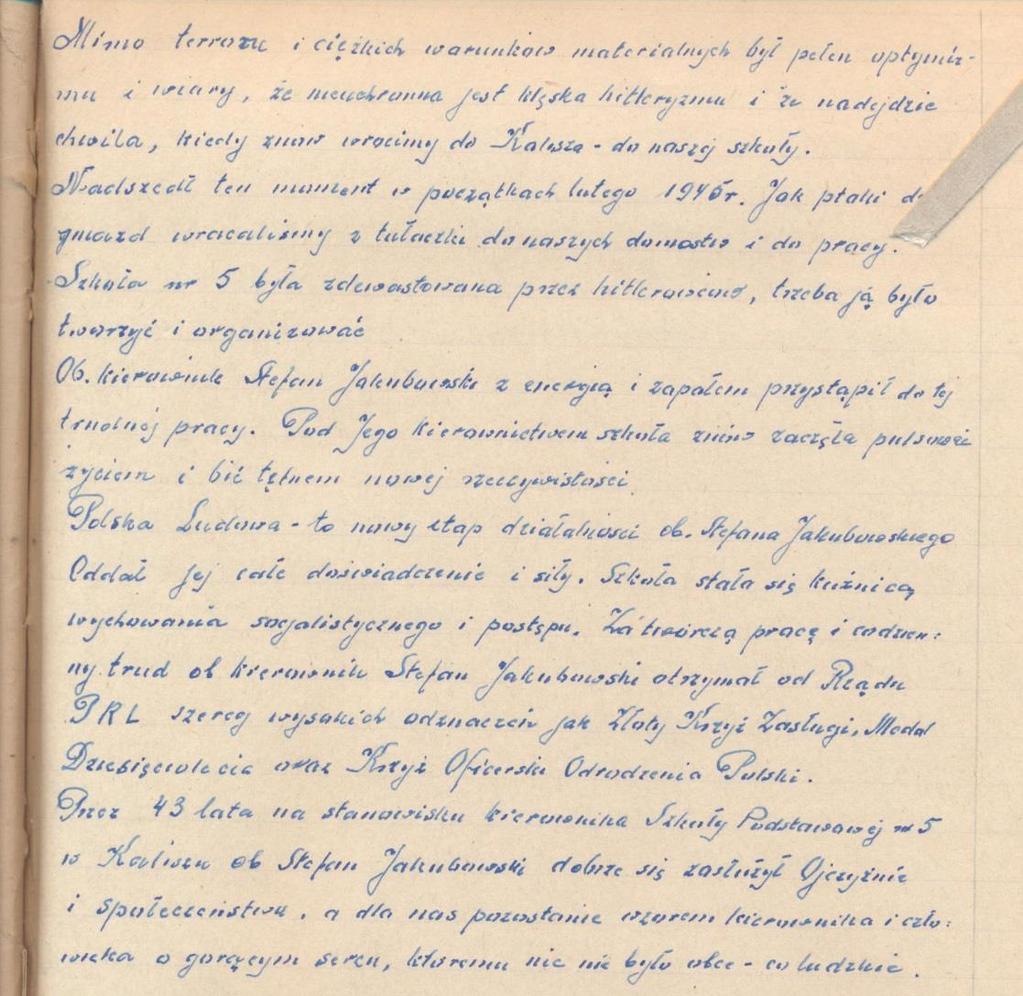 Mimo terroru i ciężkich warunków materialnych był pełen optymiz-
mu i wiary, że nieuchronna jest klęska hitleryzmu i że nadejdzie
chwila, kiedy znów wrócimy do Kalisza - do naszej szkoły.
Nadszedł ten moment w początkach lutego 1945 r. Jak ptaki do
gniazd wracaliśmy z tułaczki do naszych domostw i do pracy.
Szkoła nr 5 była zdewastowana przez hitlerowców, trzeba ją było
tworzyć i organizować
Ob. kierownik Stefan Jakubowski z energią i zapałem przystąpił do tej
trudnej pracy. Pod Jego kierownictwem szkoła znów zaczęła pulsować
życiem i bić tętnem nowej rzeczywistości
Polska Ludowa - to nowy etap działalności ob. Stefana Jakubowskiego
Oddał Jej całe doświadczenie i siły. Szkoła stała się kuźnicą
wychowania socjalistycznego i postępu. Za twórczą pracę i codzien:
ny trud ob kierownik Stefan Jakubowski otrzymał od Rządu
PRL szereg wysokich odznaczeń jak Złoty Krzyż Zasługi, Medal
Dziesięciolecia oraz Krzyż Oficerski Odrodzenia Polski.
Przez 43 lata na stanowisku kierownika Szkoły Podstawowej nr 5
w Kaliszu ob Stefan Jakubowski dobrze się zasłużył Ojczyźnie
i społeczeństwu, a dla nas pozostanie wzorem kierownika i czło:
wieka o gorącym sercu, któremu nic nie było obce - co ludzkie.